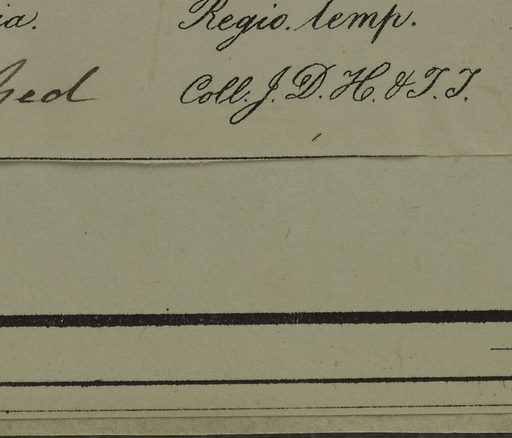 ia. Regio. temp.
Coll. J. D. H. & T. T.